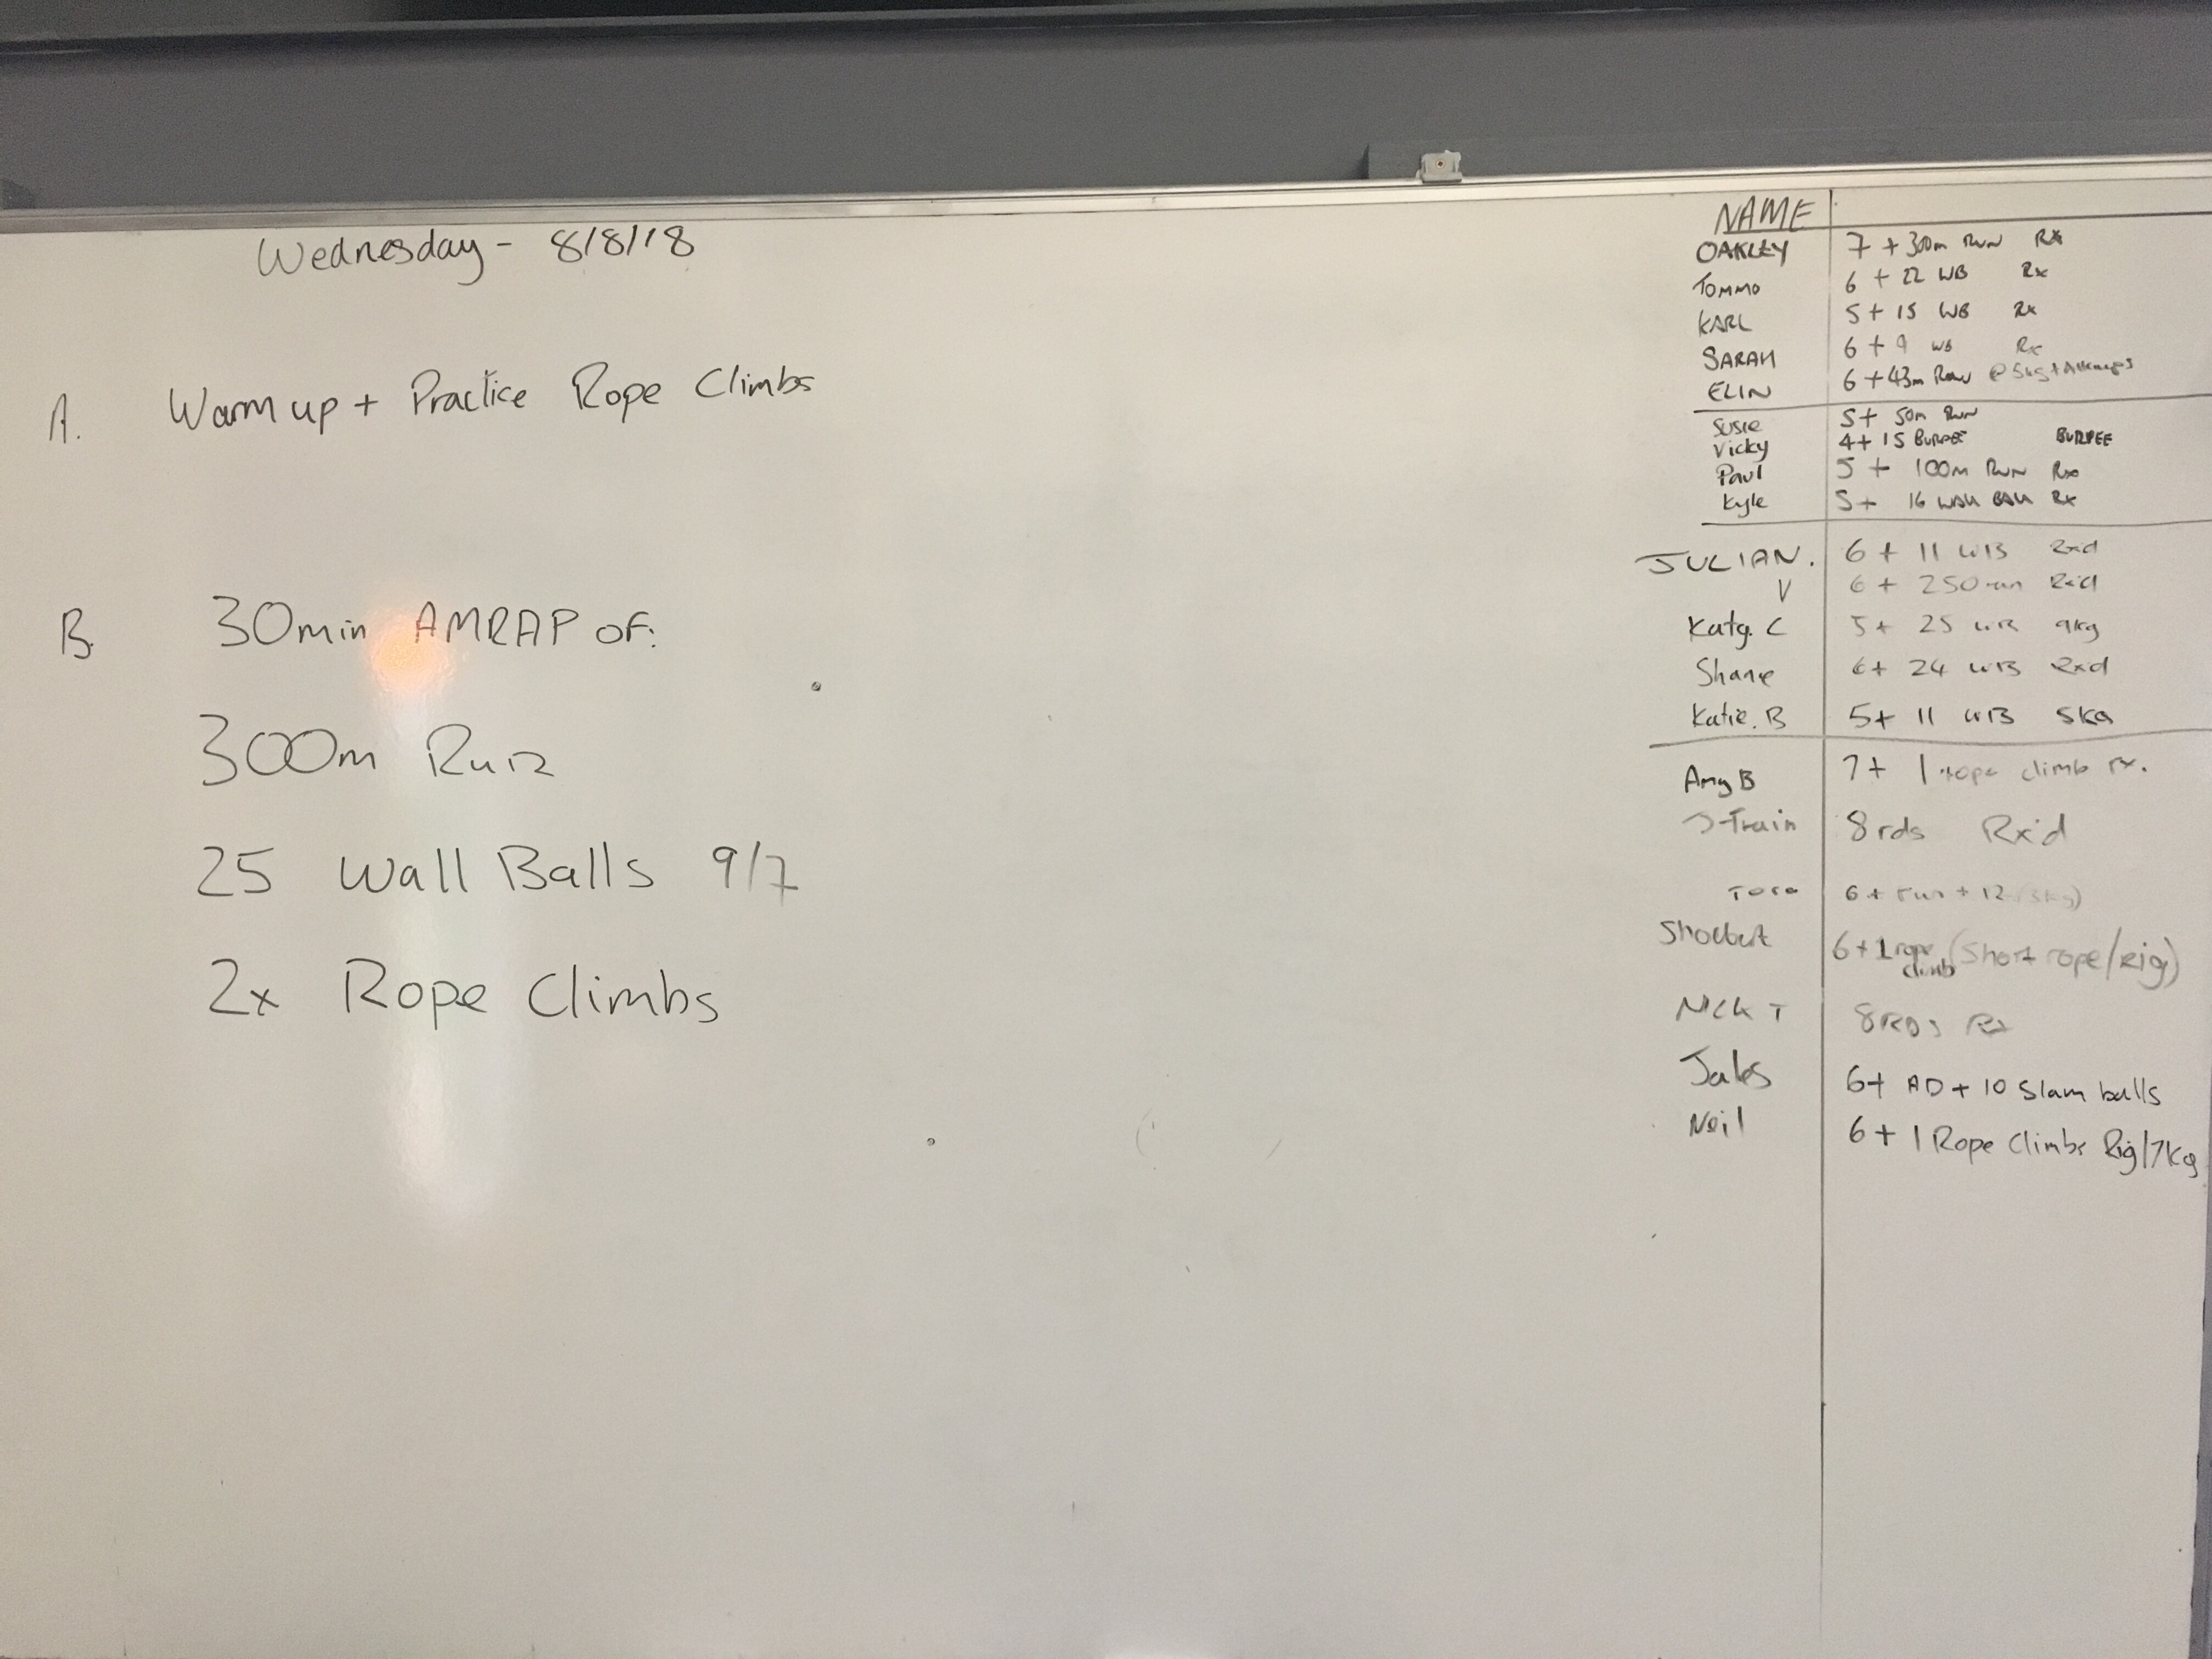 Wednesday - 8/8/18
A. Warm up + Practice Rope Climbs
B. 30min AMRAP OF:
300m Run
25 Wall Balls 9/7
2x Rope Climbs
NAME
OAKLEY 7 + 300m RUN Rx
TOMMO 6 + 22 WB Rx
KARL 5 + 15 WB Rx
SARAH 6 + 9 WB Rx
ELIN 6 + 43m Row @ 5kg + Attempts
Susie 5 + 50m RUN
Vicky 4 + 15 BURPEE BURPEE
Paul 5 + 100m RUN Rx
Kyle 5 + 16 WALL BALL Rx
JULIAN. 6 + 11 WB Rxd
V 6 + 250 Rxd
Katy. C 5 + 25 WB 9kg
Shane 6 + 24 WB Rxd
Katie. B 5 + 11 WB 5kg
Amy B 7 + 1 rope climb rx.
J-Train 8 rds Rx'd
6 + run + 12
6 + 1 rope climb (Short rope/Rig)
NICK T 8 RDS Rx
Jakes 6 + AD + 10 Slam balls
Neil 6 + 1 Rope Climbs Rig/7kg